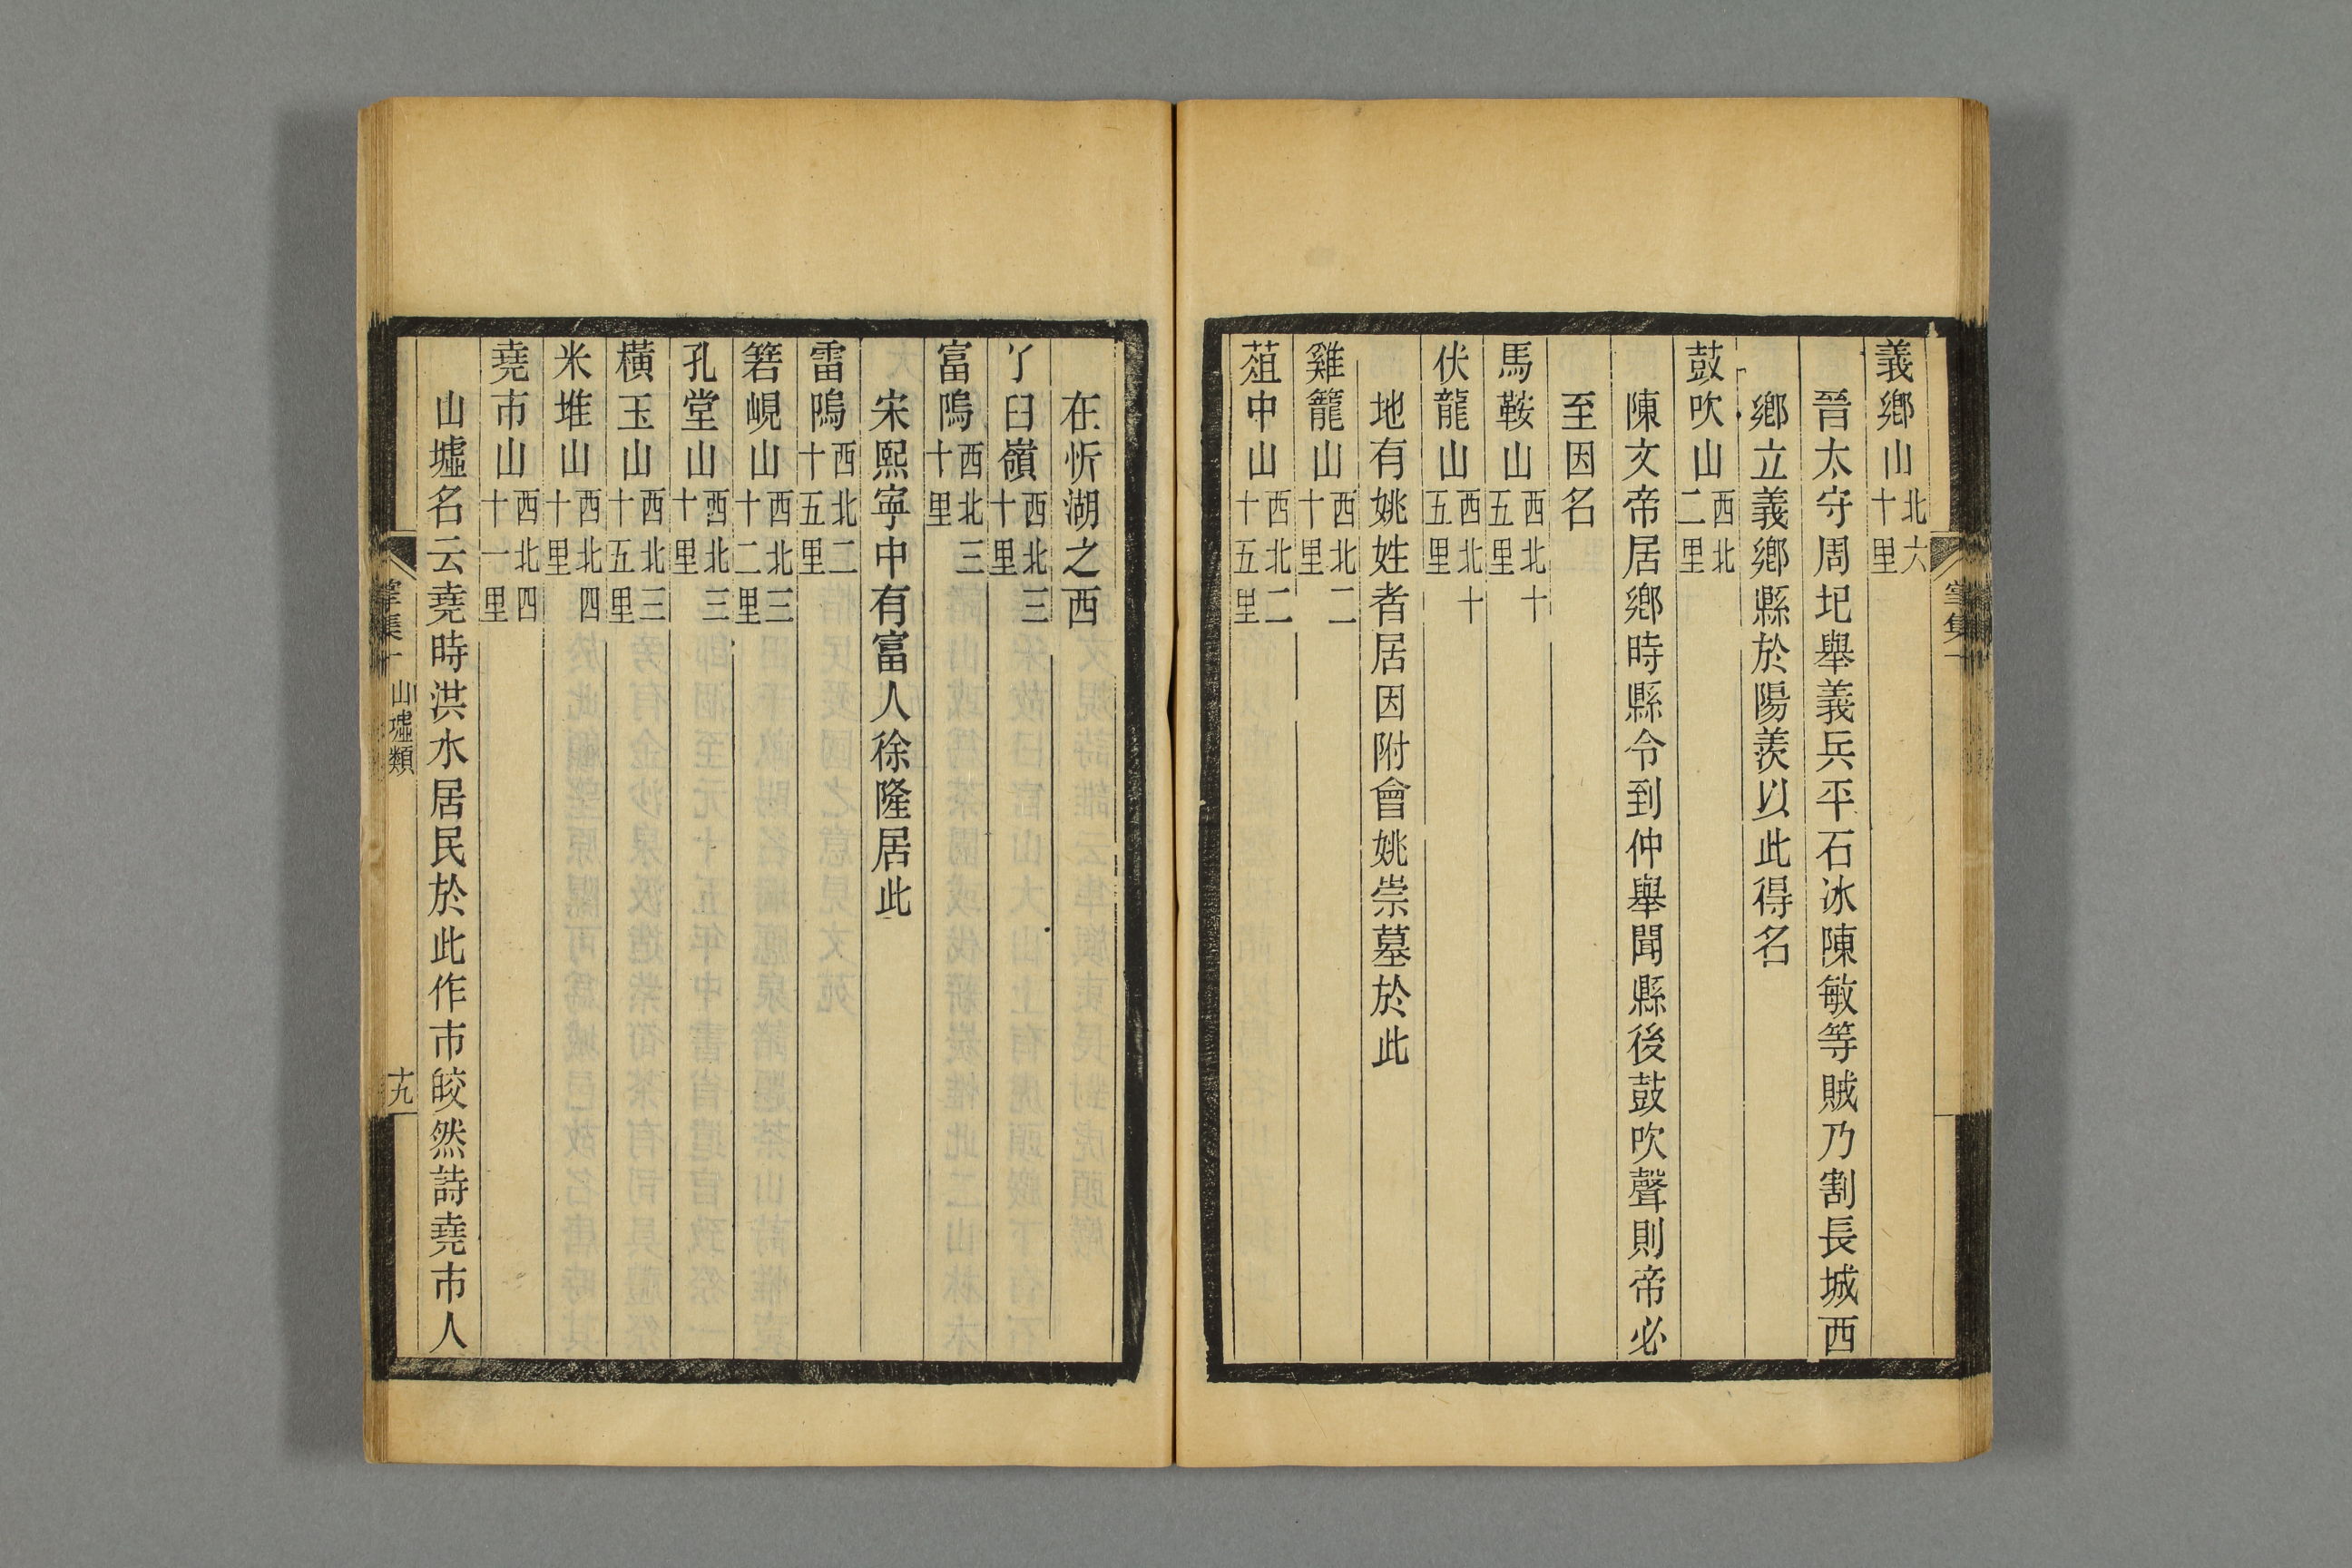 義鄉山北六十里
晉太守周玘舉義兵平石冰陳敏等賊乃割長城西
鄉立義鄉縣於陽羨以此得名
鼓吹山西北二里
陳文帝居鄉時縣令到仲舉聞縣後鼓吹聲則帝必
至因名
馬鞍山西北十五里
伏龍山西北十五里
地有姚姓者居因附會姚崇墓於此
雞籠山西北二十里
葅中山西北二十五里
在忻湖之西
了臼嶺西北三十里
富隖西北三十里
宋熙寧中有富人徐隆居此
雷隖西北二十五里
箬峴山西北三十二里
孔堂山西北三十里
橫玉山西北三十五里
米堆山西北四十里
堯市山西北四十一里
山墟名云堯時洪水居民於此作市皎然詩堯市人
掌集一 山墟類 十九